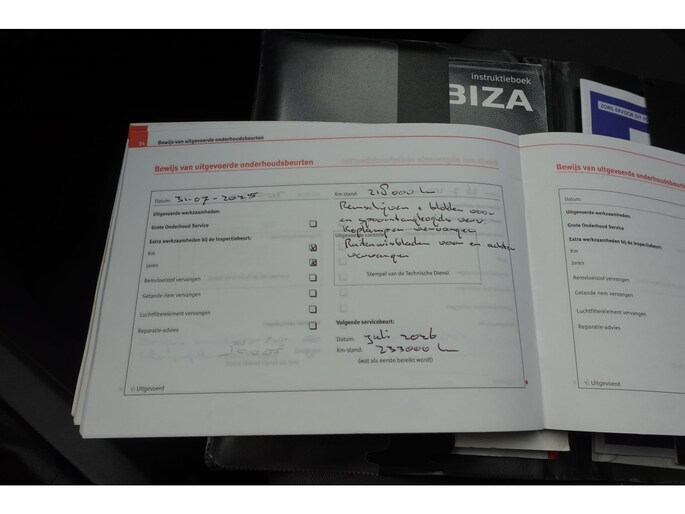 instruktieboek
BIZA
ZORG ERVOOR DAT
Bewijs van uitgevoerde onderhoudsbeurten
Bewijs van uitgevoerde onderhoudsbeurten
Datum: 31-07-2025
Km-stand: 218000 km
Uitgevoerde werkzaamheden:
Grote Onderhoud Service
Extra werkzaamheden bij de inspectiebeurt:
Km
Jaren
Remvloeistof vervangen
Getande riem vervangen
Luchtfilterelement vervangen
Reparatie-advies
Remschijven + blokken voor
en spoorstangkogels verv.
Koplampen vervangen
Uitgevoerde controle
Ruitenwisbladen voor en achter
vervangen
Stempel van de Technische Dienst
Volgende servicebeurt:
Datum: juli 2026
Km-stand: 233000 km
(wat als eerste bereikt wordt)
Uitgevoerd
Bewijs van uitgevoerde onderhoudsbeurten
Datum:
Uitgevoerde werkzaamheden:
Grote Onderhoud Service
Extra werkzaamheden bij de inspectiebeurt:
Km
Jaren
Remvloeistof vervangen
Getande riem vervangen
Luchtfilterelement vervangen
Reparatie-advies
Uitgevoerd